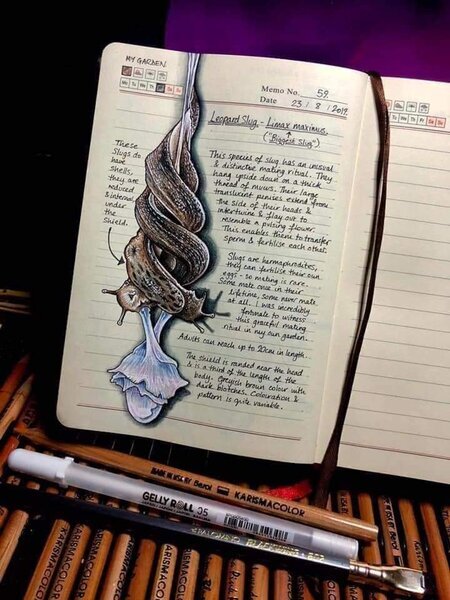 MY GARDEN.
Memo No. 59.
Mo Tu We Th Fr Sa Su
Date 23 / 8 / 2019
Leopard Slug - Limax maximus.
("Biggest Slug")
These
Slugs do
have
shells,
they are
reduced
& internal
under
the
shield.
This species of slug has an unusual
& distinctive mating ritual. They
hang upside down on a thick
thread of mucus. Their large
translucent penises extend from
the side of their heads &
intertwine & flay out to
resemble a pulsing flower.
This enables them to transfer
sperm & fertilise each other.
Slugs are hermaphrodites,
they can fertilise their own
eggs - so mating is rare.
Some mate once in their
lifetime, some never mate
at all. I was incredibly
fortunate to witness
this graceful mating
ritual in my own garden.
Adults can reach up to 20cm in length.
The shield is rounded near the head
& is a third of the length of the
body. Greyish brown colour with
dark blotches. Colouration &
pattern is quite variable.
Fr Sa Su
MADE IN USA BY Berol KARISMACOLOR
GELLY ROLL 05
KARISMACOLOR
KARISMACOLOR
KARISMACOLOR
KARISMACOLOR